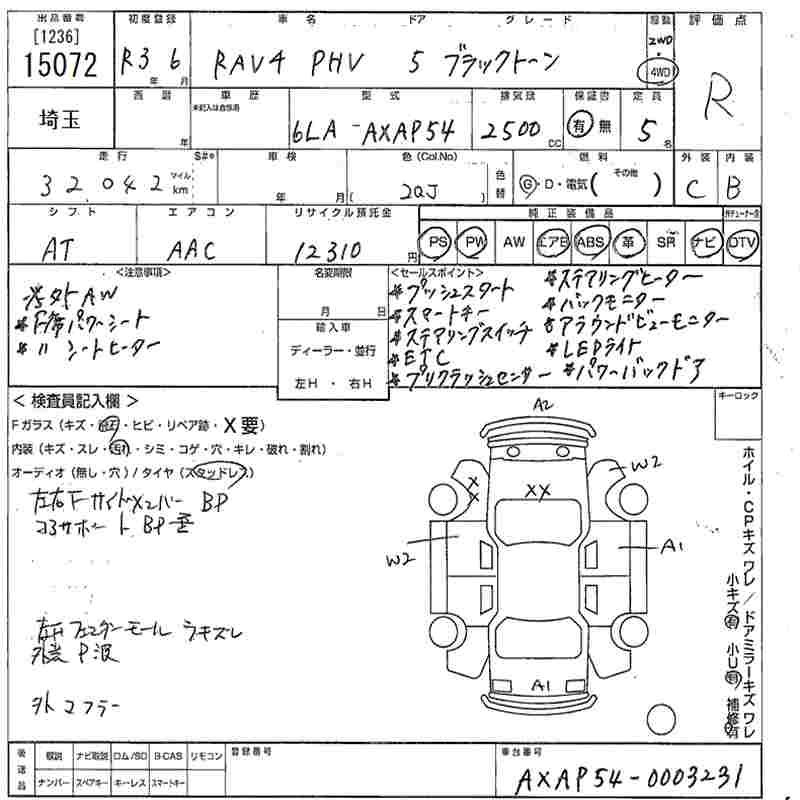 出品番号 初度登録 車名 ドア グレード 駆動 評価点
[1236] 15072 R3 6 年 月 RAV4 PHV 5 ブラックトーン 2WD・4WD R
埼玉 西暦 年 車歴 未記入は自家用 型式 6LA-AXAP54 排気量 2500 CC 保証書 有 無 定員 5 名
走行 32,042 マイル km S#* 車検 年 月 色(Col.No) ( 2QJ ) 色替 燃料 G・D・電気( その他 ) 外装 C 内装 B
シフト エアコン リサイクル預託金 純正装備品
AT AAC 12310 円 PS PW AW エアB ABS 革 SR ナビ DTV
<注意事項>
社外AW
*F席パワーシート
*〃 シートヒーター
名変期限
月 日
輸入車
ディーラー・並行
左H・右H
<セールスポイント>
*プッシュスタート
*スマートキー
*ステアリングスイッチ
*ETC
*プリクラッシュセンサー
*ステアリングヒーター
*バックモニター
*アラウンドビューモニター
*LEDライト
*パワーバックドア
キーロック
<検査員記入欄>
Fガラス(キズ・飛石・ヒビ・リペア跡・X要)
内装(キズ・スレ・汚れ・シミ・コゲ・穴・キレ・破れ・割れ)
オーディオ(無し・穴)/タイヤ(スタッドレス)
左右Fサイドメンバー BP
コアサポート BP歪
フェンダーモール ラキズレ
外装 P波
外マフラー
A2
W2
X
X
XX
W2
A1
A1
ホイル・CPキズ ワレ/ドアミラーキズ ワレ
小キズ有 小U有 補修有
後送品 取説 ナビ取説 ロム/SD B-CAS リモコン
ナンバー スペアキー キーレス スマートキー
登録番号
車台番号
AXAP54-0003231